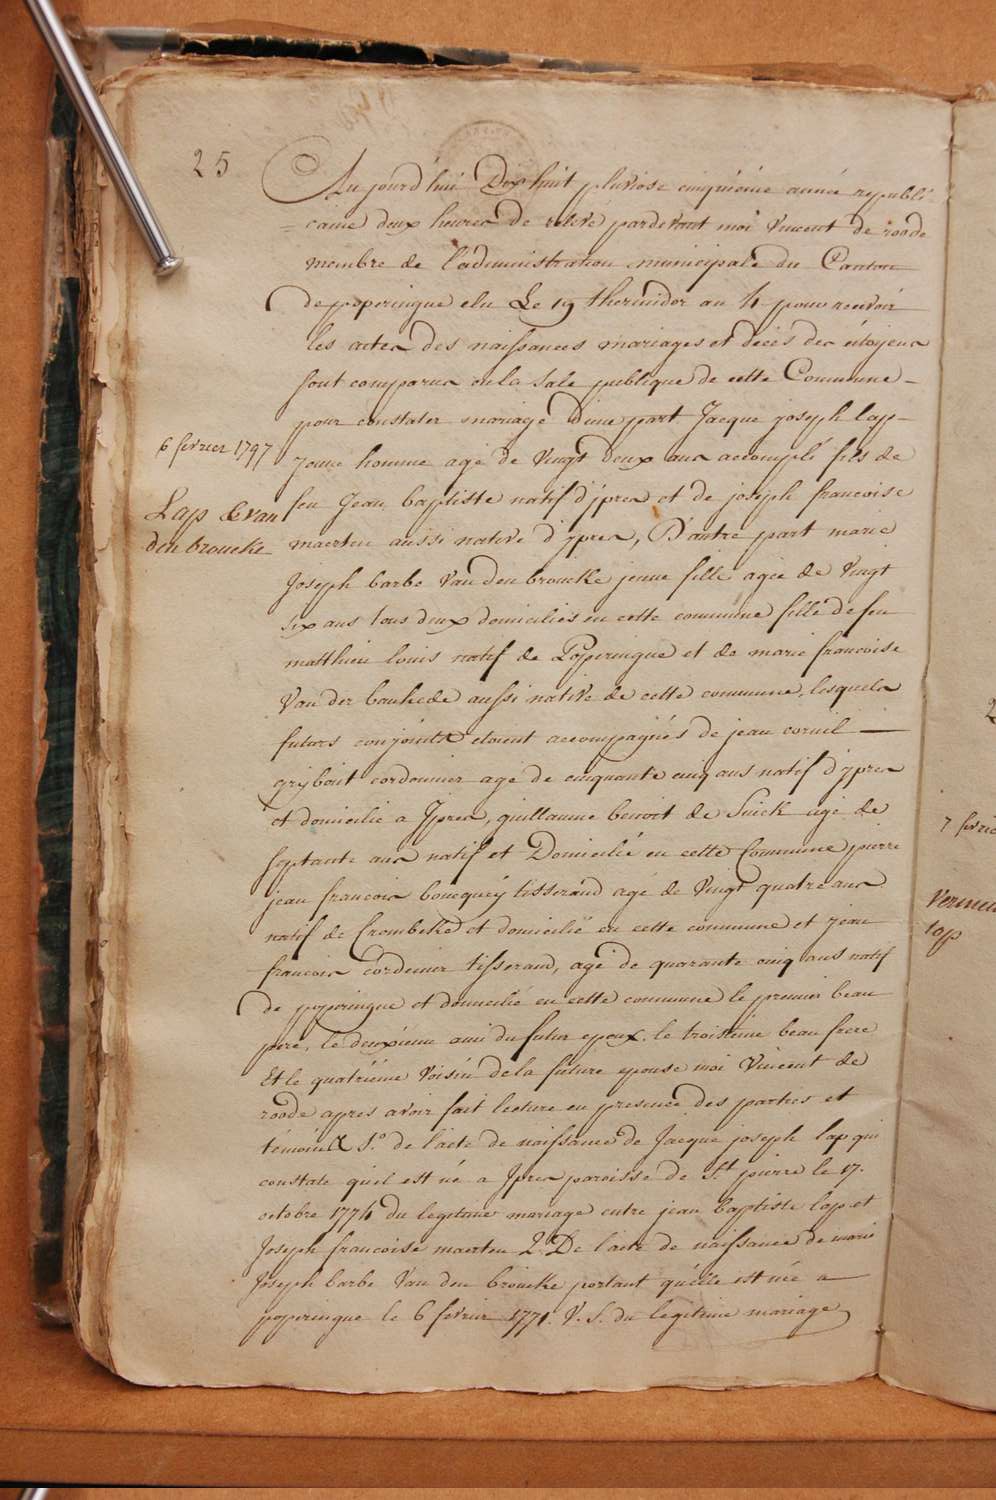 25
Aujourd'hui Dix huit pluviose cinquiéme année republi
=caine deux heures de relevé pardevant moi Vincent de roode
membre de l'administration municipale du Canton
de poperingue elu Le 19 thermidor an 4 pour recevoir
les actes des naissances mariages et décès des citoyens
sont comparus en la sale publique de cette Commune -
pour constater mariage D'une part Jacque joseph lap -
jeune homme agé de Vingt deux ans accompli fils de
feu Jean baptiste natif d'ypres et de joseph francoise
maerten aussi native d'ypres, D'autre part marie
Joseph barbe Van den broucke jeune fille agée de Vingt
six ans tous deux domiciliés en cette commune fille de feu
matthieu louis natif de Poperingue et de marie francoise
Van der bouhede aussi native de cette commune, lesquels
futurs conjoints etoient accompagnés de jean corneil —
gryboit cordonnier agé de cinquante cinq ans natif d'ypres
et domicilié a Ypres, guillaume benoit de Snick agé de
septante ans natif et Domicilié en cette Commune pierre
jean francois boucquéy tisserand agé de Vingt quatre ans
natif de Crombeke et domicilié en cette commune et jean
francois cordenier tisserand, agé de quarante cinq ans natif
de poperingue et domicilié en cette commune le premier beau
pere, le deuxiéme ami du futur epoux. le troisieme beau frere
Et le quatriéme Voisin de la future epouse moi Vincent de
roode apres avoir fait lecture en presence des parties et
témoins 1.º de l'acte de naissance de Jacque joseph lap qui
constate qu'il est né a Ypres paroisse de St pierre le 17.
octobre 1774 du legitime mariage entre jean baptiste lap et
Joseph francoise maerten 2.º De l'acte de naissance de marie
Joseph barbe Van den broucke portant qu'elle est née a —
poperingue le 6 fevrier 1771. V. S. du legitime mariage
6 fevrier 1797
Lap & van
den broucke
7 fevrie
lap